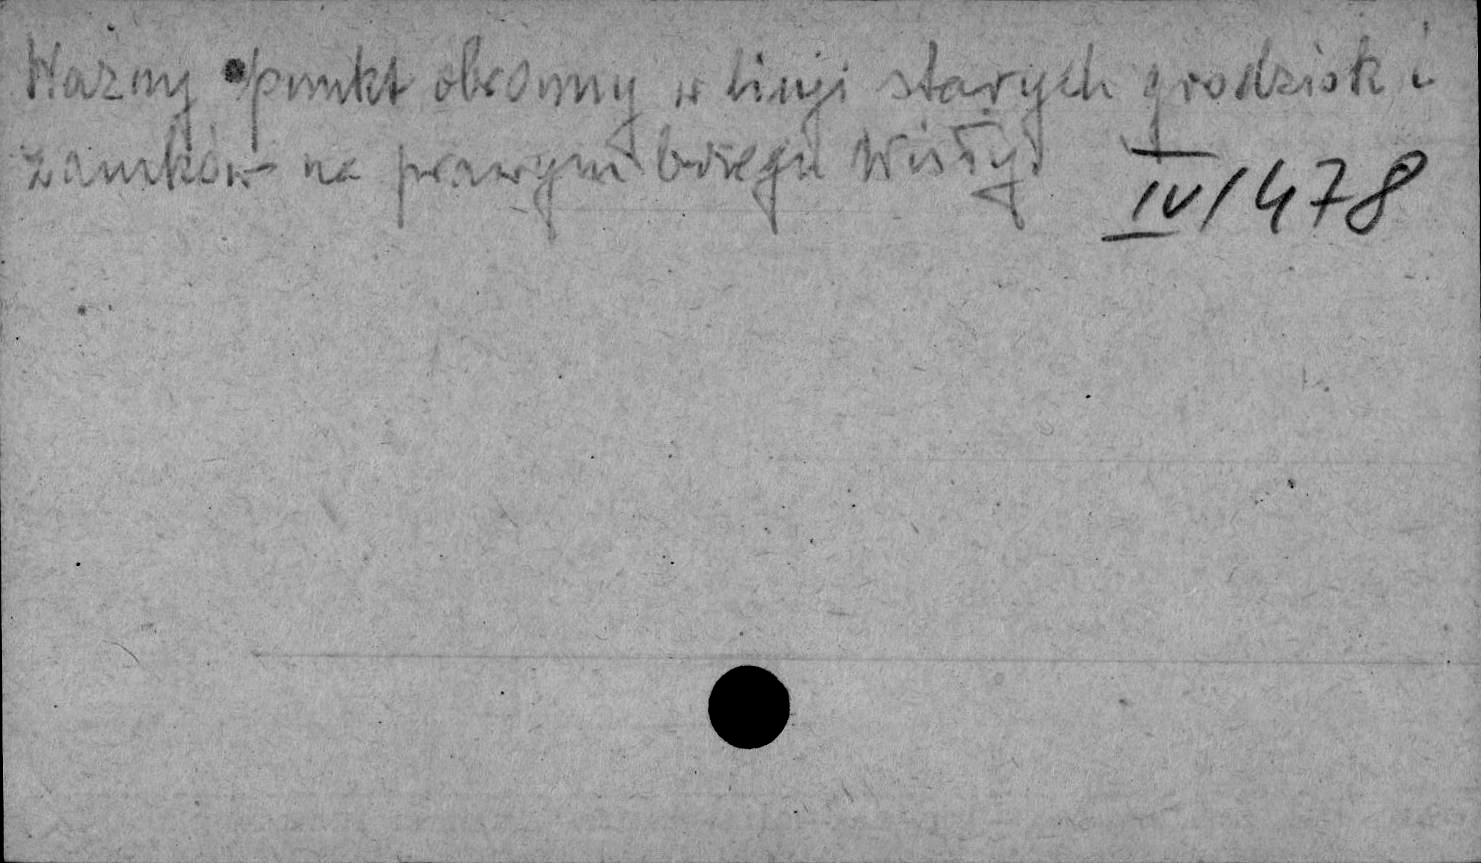 Ważny punkt obronny w linji starych grodzisk i
zamków na prawym brzegu Wisły.
IV/478